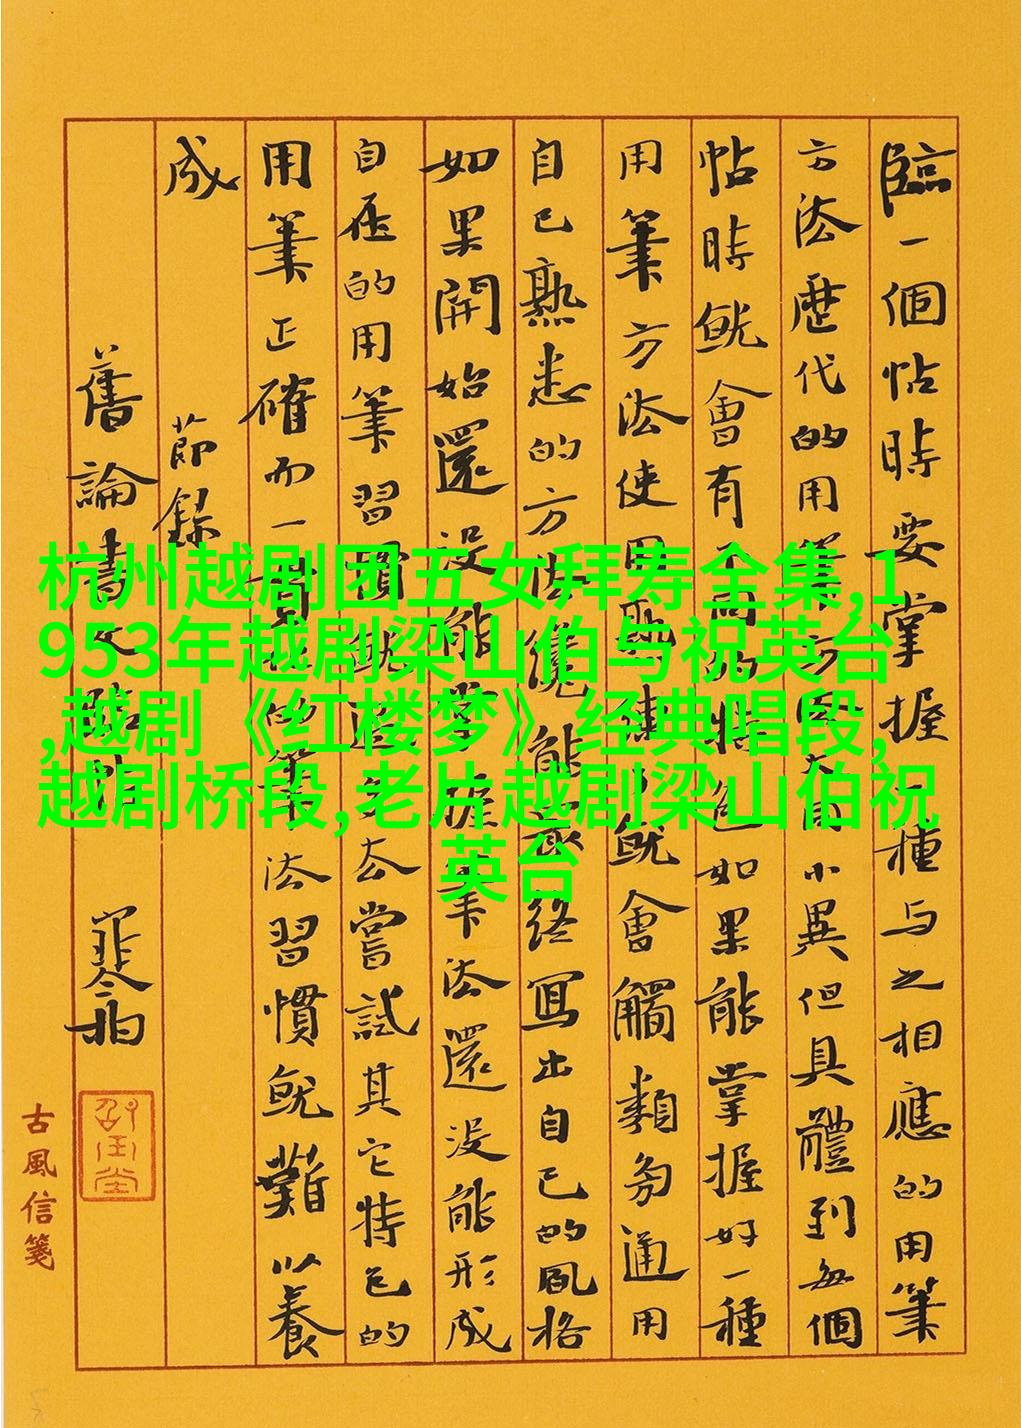 杭州越剧团五女拜寿全集,1
953年越剧梁山伯与祝英台
,越剧《红楼梦》经典唱段,
越剧桥段,老片越剧梁山伯祝
英台
臨一個帖時要掌握種与之相應的用筆
方法歷代的用筆方小異但具體到每個
帖時就會有不同的特色如果能掌握好一種
用筆方法使用熟練了就會觸類旁通用
自己熟悉的方法能最終寫出自己的風格
如果開始還没能掌握筆法還没能形成
自在的用筆習慣就過多去嘗試其它特色的
用筆正確而一法習慣就難以養
成
節錄
舊論書文臨
古風信箋